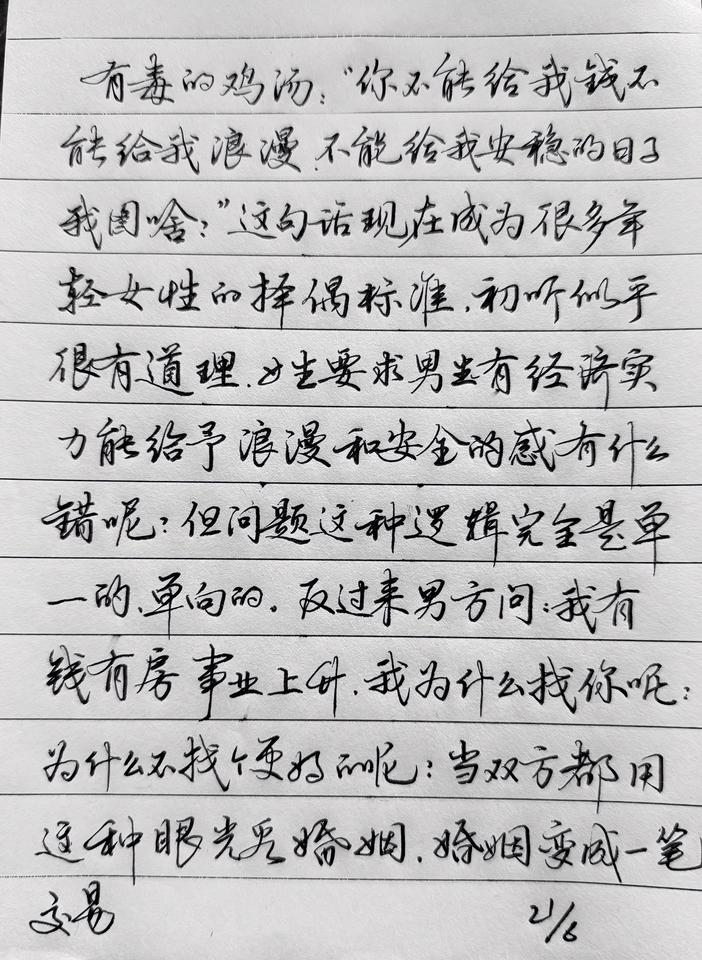 有毒的鸡汤:“你不能给我钱不
能给我浪漫.不能给我安稳的日子
我图啥?”这句话现在成为很多年
轻女性的择偶标准.初听似乎
很有道理.女生要求男生有经济实
力能给予浪漫和安全的感有什么
错呢?但问题这种逻辑完全是单
一的.单向的.反过来男方问:我有
钱有房事业上升.我为什么找你呢?
为什么不找个更好的呢?当双方都用
这种眼光看婚姻.婚姻变成一笔
交易 21/6